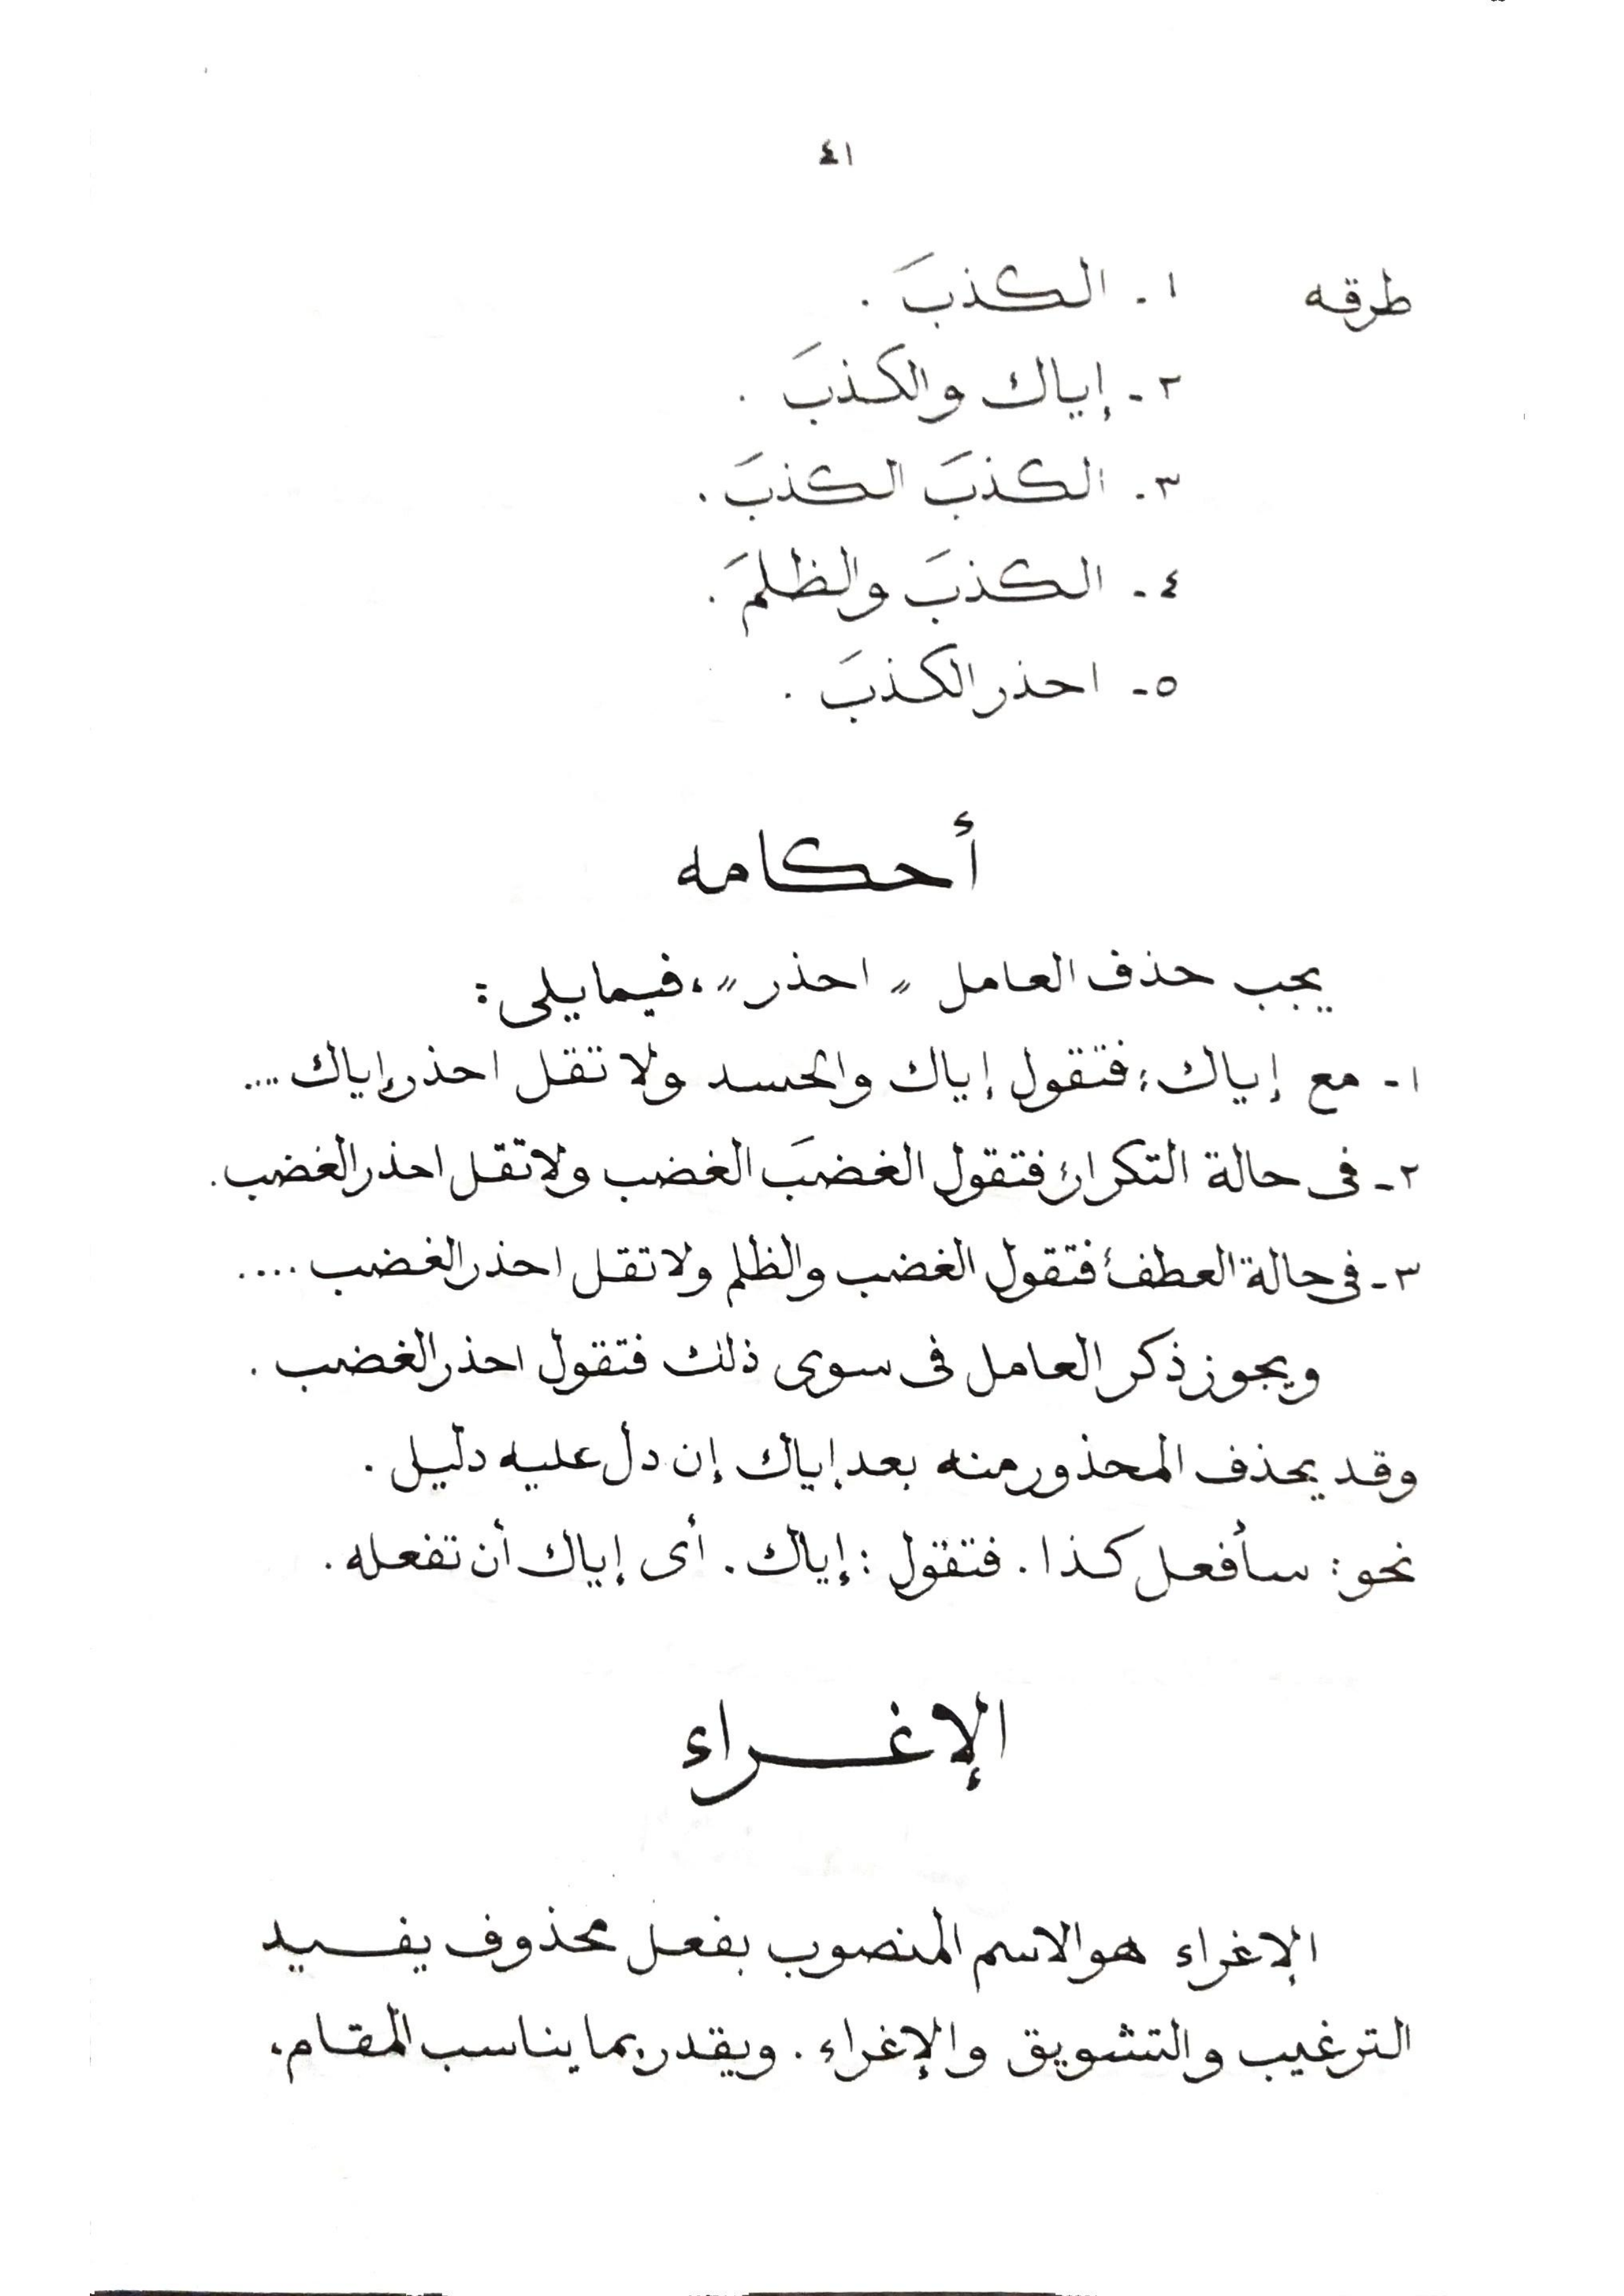 ٤١
طرقه ١- الكذبَ .
٢- إياك والكذبَ .
٣- الكذبَ الكذبَ .
٤- الكذبَ والظلمَ .
٥- احذر الكذبَ .
أحكامه
يجب حذف العامل " احذر " ، فيما يلى :
١- مع إياك ؛ فتقول إياك والحسد ولا تقل احذر إياك ....
٢- فى حالة التكرار ؛ فتقول الغضبَ الغضب ولا تقل احذر الغضب .
٣- فى حالة العطف ؛ فتقول الغضب والظلم ولا تقل احذر الغضب ....
ويجوز ذكر العامل فى سوى ذلك فتقول احذر الغضب .
وقد يحذف المحذور منه بعد إياك إن دل عليه دليل .
نحو : سأفعل كذا . فتقول : إياك . أى إياك أن تفعله .
الإغراء
الإغراء هو الاسم المنصوب بفعل محذوف يفيد
الترغيب والتشويق والإغراء . ويقدر بما يناسب المقام .